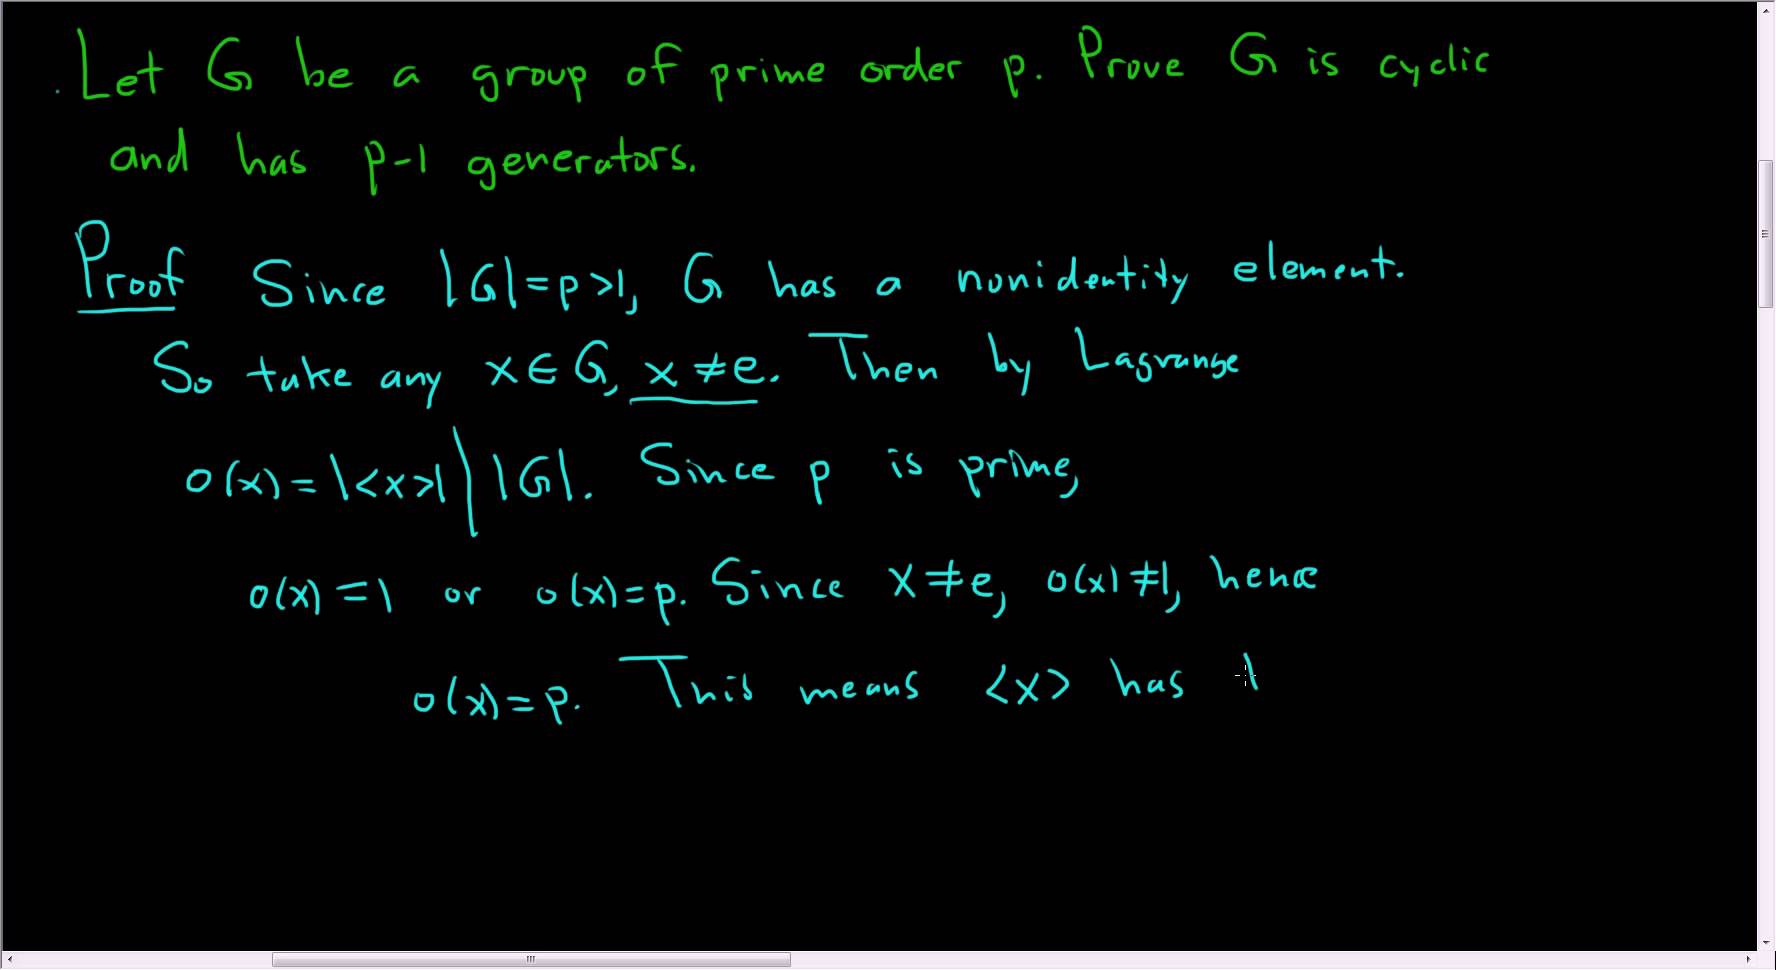 Let G be a group of prime order p. Prove G is cyclic
and has p-1 generators.
Proof Since |G|=p>1, G has a nonidentity element.
So take any x∈G, x≠e. Then by Lagrange
o(x)=|<x>| | |G|. Since p is prime,
o(x)=1 or o(x)=p. Since x≠e, o(x)≠1, hence
o(x)=p. This means <x> has